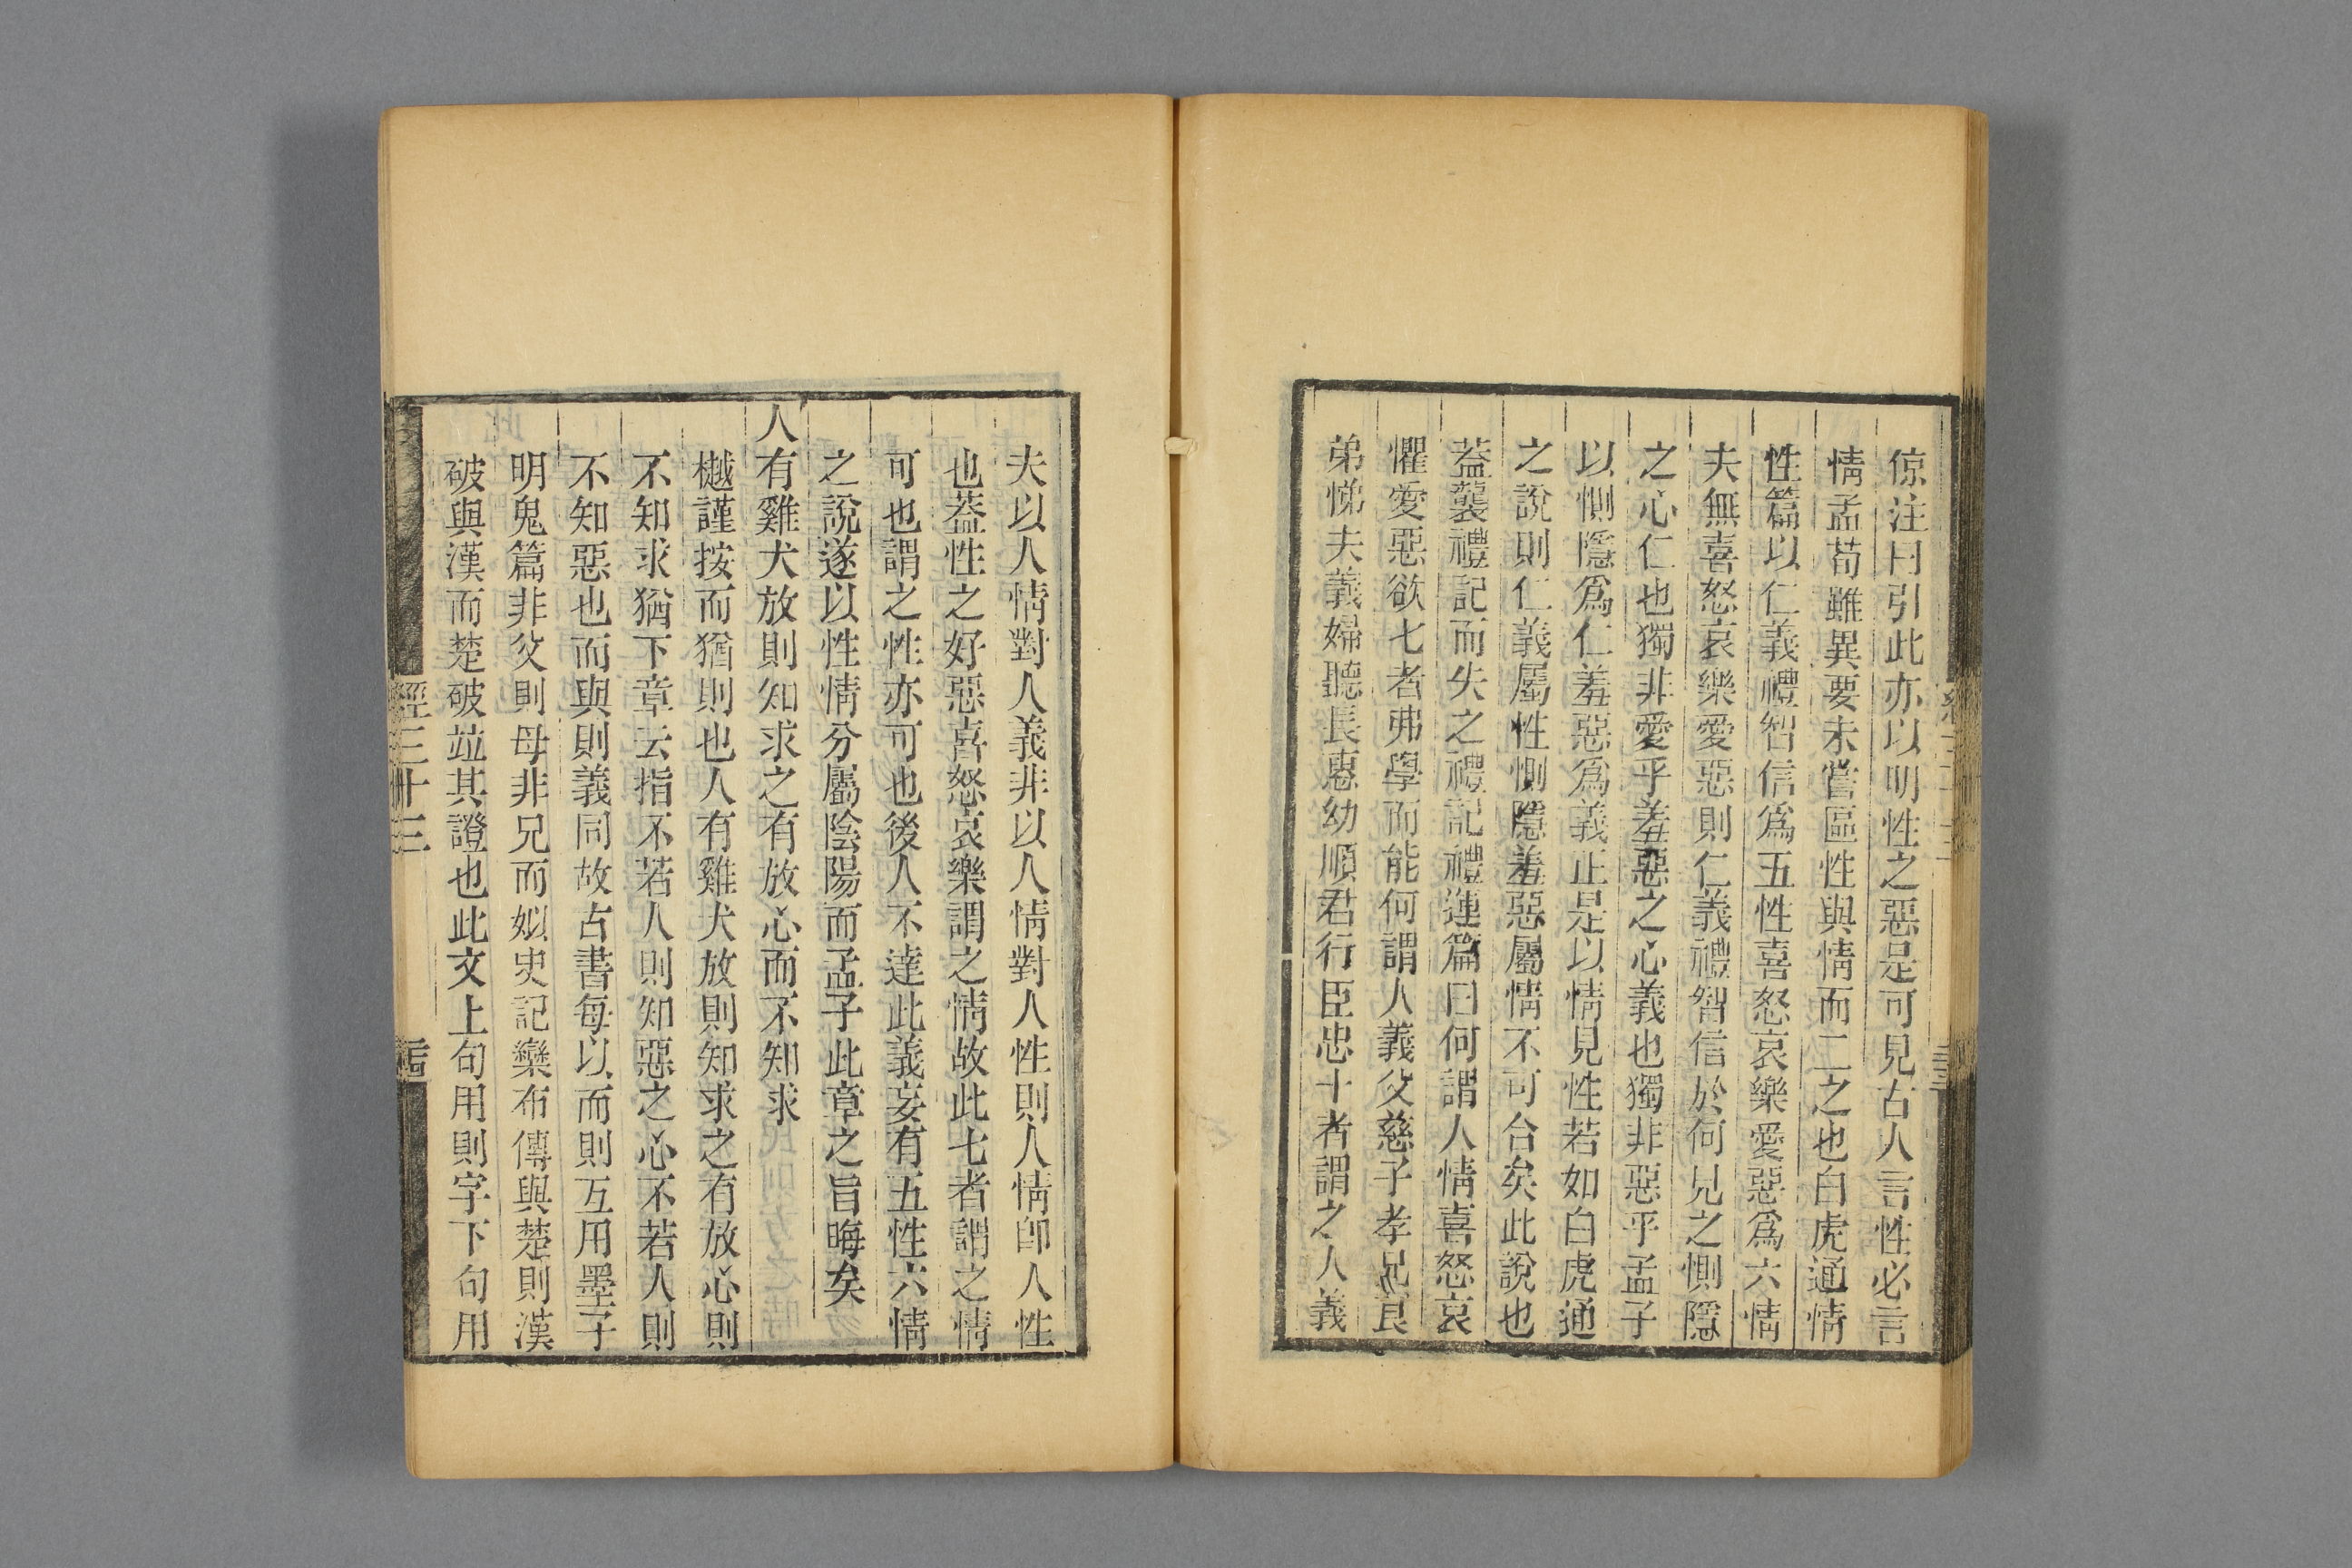 倞注曰引此亦以明性之惡是可見古人言性必言
情孟荀雖異要未嘗區性與情而二之也白虎通情
性篇以仁義禮智信爲五性喜怒哀樂愛惡爲六情
夫無喜怒哀樂愛惡則仁義禮智信於何見之惻隱
之心仁也獨非愛乎羞惡之心義也獨非惡乎孟子
以惻隱爲仁羞惡爲義正是以情見性若如白虎通
之說則仁義屬性惻隱羞惡屬情不可合矣此說也
葢襲禮記而失之禮記禮運篇曰何謂人情喜怒哀
懼愛惡欲七者弗學而能何謂人義父慈子孝兄良
弟悌夫義婦聽長惠幼順君行臣忠十者謂之人義
夫以人情對人義非以人情對人性則人情卽人性
也葢性之好惡喜怒哀樂謂之情故此七者謂之情
可也謂之性亦可也後人不達此義妄有五性六情
之說遂以性情分屬陰陽而孟子此章之旨晦矣
人有雞犬放則知求之有放心而不知求
樾謹按而猶則也人有雞犬放則知求之有放心則
不知求猶下章云指不若人則知惡之心不若人則
不知惡也而與則義同故古書每以而則互用墨子
明鬼篇非父則母非兄而姒史記欒布傳與楚則漢
破與漢而楚破竝其證也此文上句用則字下句用
經三十三